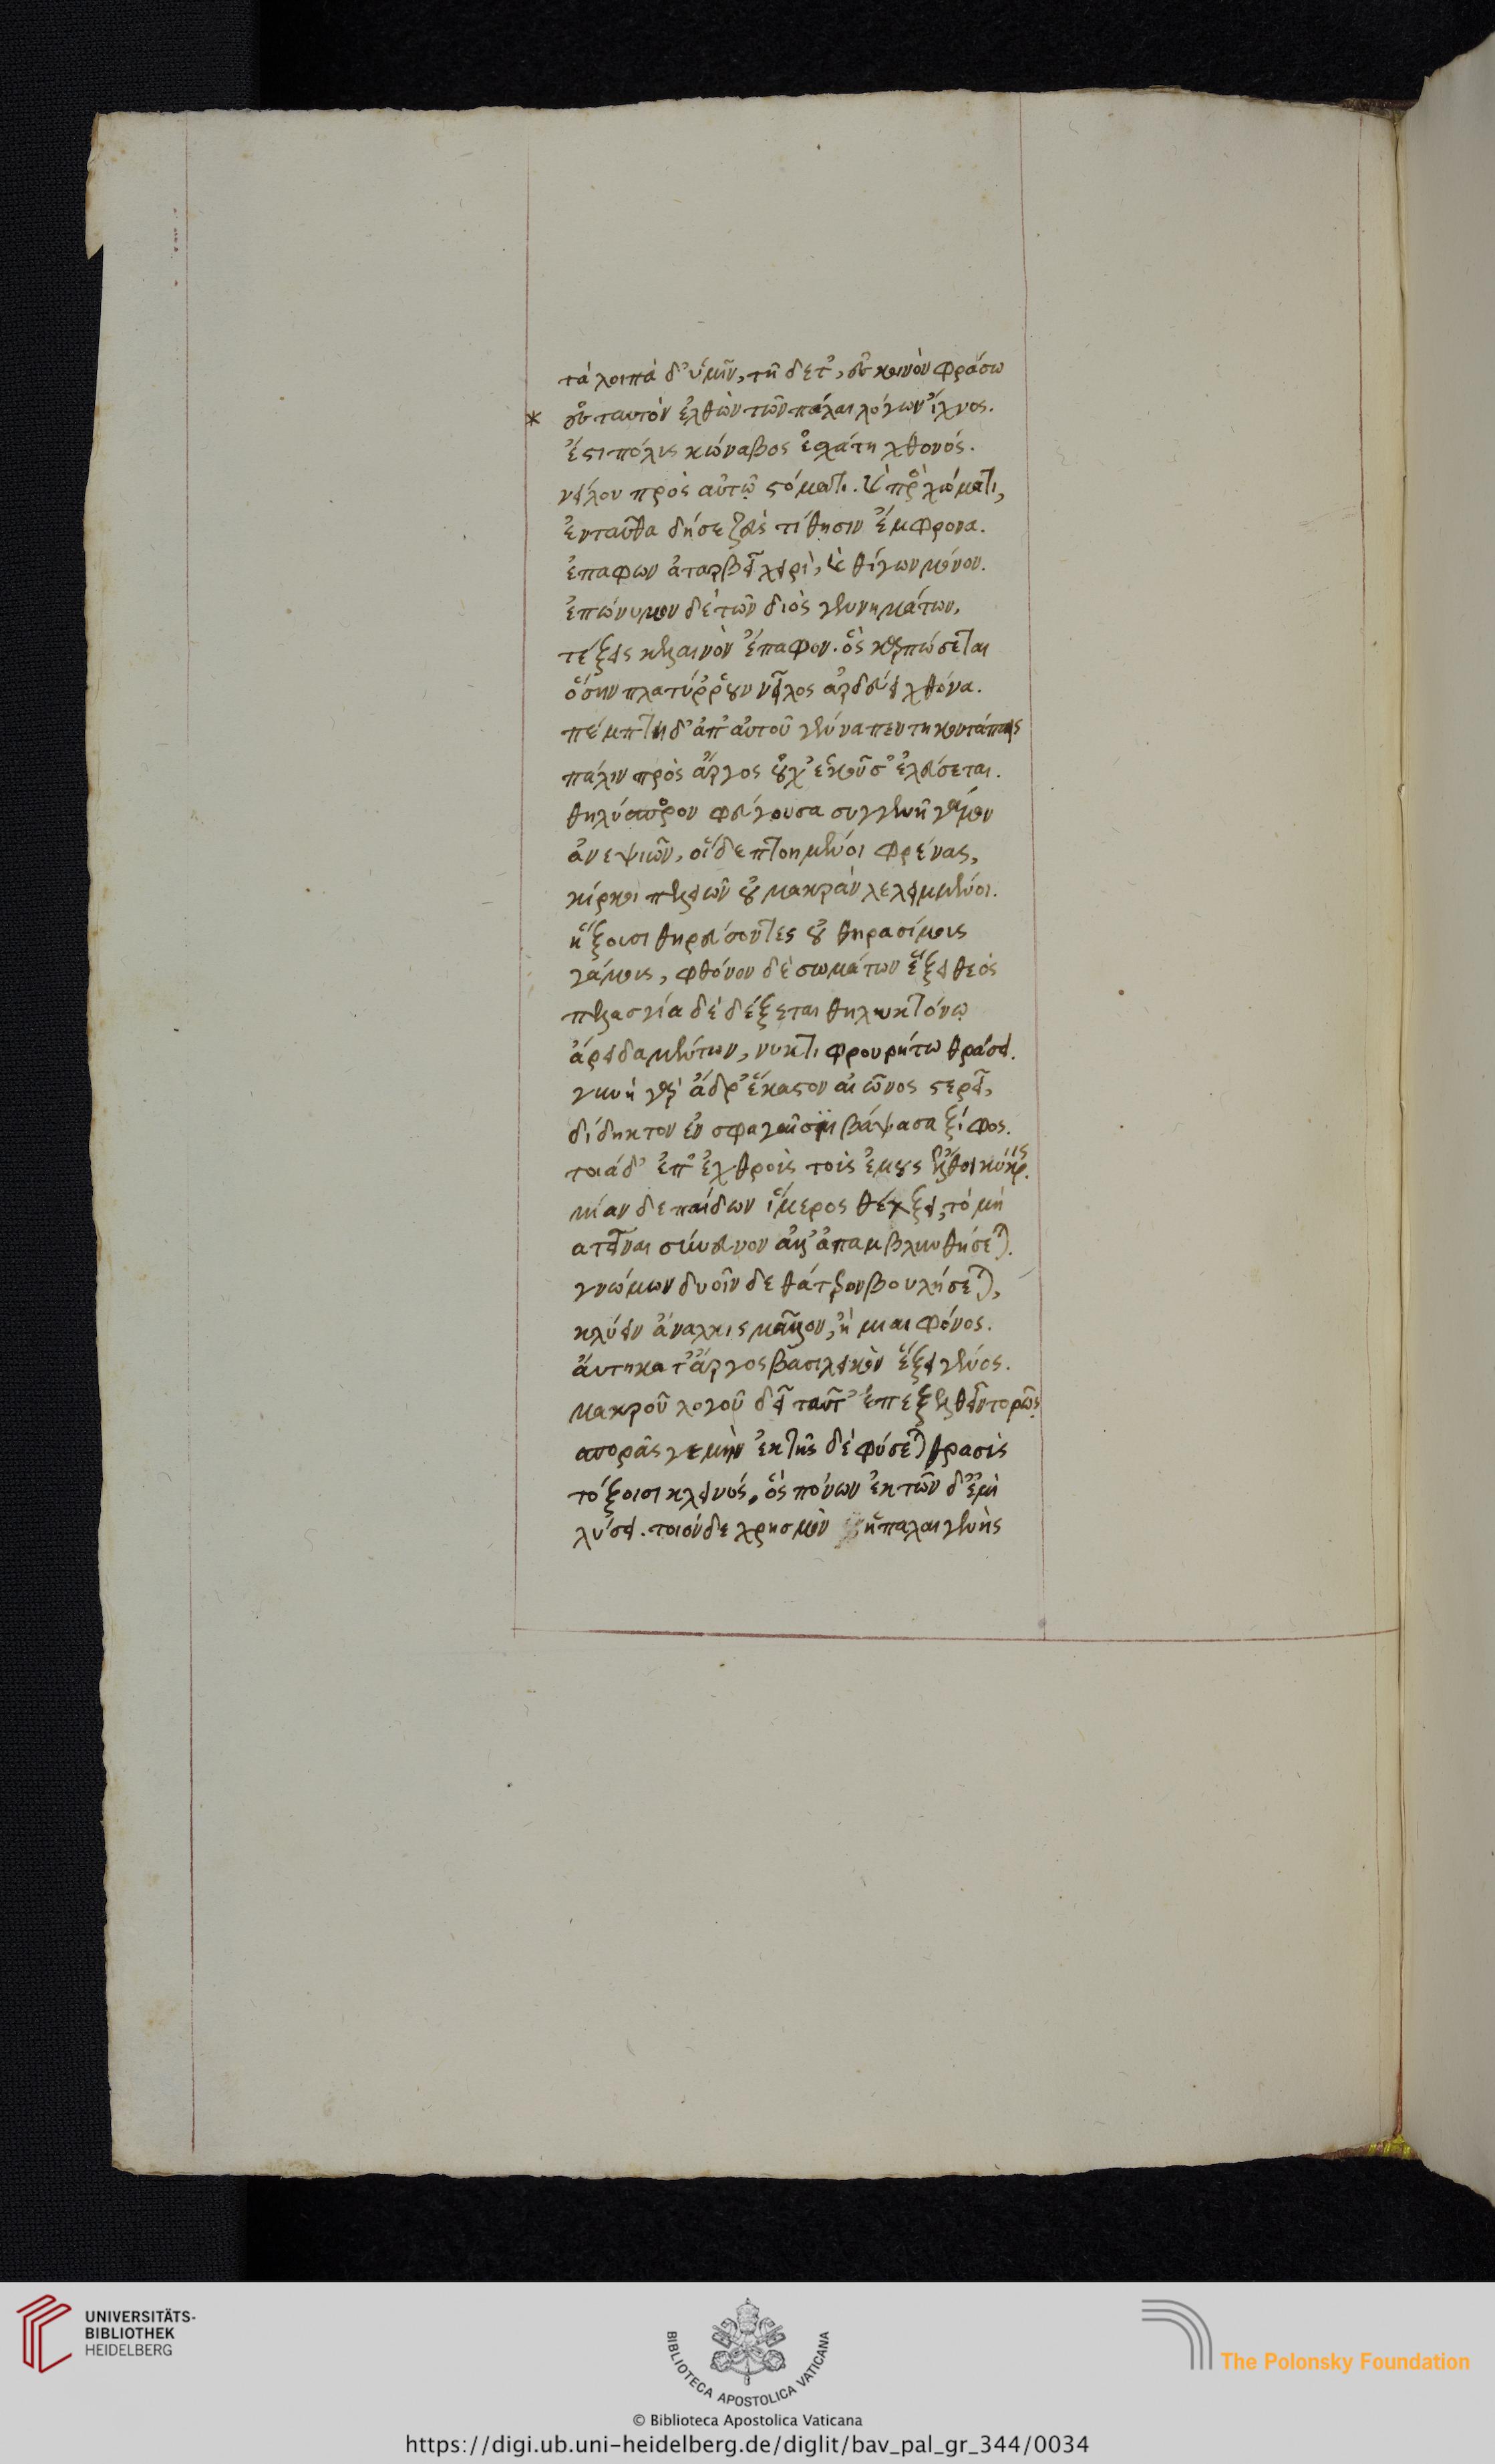 τὰ λοιπὰ δ' ὑμῖν, τῇ δε τ', ἐς κοινὸν φράσω
* ἐς ταυτὸν ἐλθὼν τῶν πάλαι λόγων ἴχνος.
ἔστι πόλις κάνωβος ἐσχάτη χθονός.
νείλου πρὸς αὐτῷ στόματι. καὶ προσχώματι,
ἐνταῦθα δή σε ζεὺς τίθησιν ἔμφρονα.
ἐπαφῶν ἀταρβεῖ χειρὶ, καὶ θίγων μόνον.
ἐπώνυμον δὲ τῶν διὸς γεννημάτων,
τέξεις κελαινὸν ἔπαφον. ὃς καρπώσεται
ὅσην πλατύρρους νεῖλος ἀρδεύει χθόνα.
πέμπτη δ' ἀπ' αὐτοῦ γέννα πεντηκοντάπαις
πάλιν πρὸς ἄργος οὐχ' ἑκοῦσ' ἐλεύσεται.
θηλύσπορον φεύγουσα συγγενῆ γάμον
ἀνεψιῶν, οἵ δε πτοημένοι φρένας,
κίρκοι πελειῶν οὐ μακρὰν λελειμμένοι.
ἥξουσι θηρεύσοντες οὐ θηρασίμους
γάμους, φθόνον δὲ σωμάτων ἕξει θεός
πελασγία δὲ δέξεται θηλυκτόνῳ
ἄρει δαμέντων, νυκτι φρουρήτω θράσει.
γυνὴ γὰρ ἄνδρ' ἕκαστον αἰῶνος στερεῖ,
δίθηκτον ἐν σφαγαῖσι βάψασα ξίφος.
τοιάδ' ἐπ' ἐχθροὺς τοὺς ἐμοὺς ἔλθοι κύπρις.
μίαν δε παίδων ἵμερος θέλξει, τὸ μὴ
κτεῖναι σύνευνον ἀλλ' ἀπαμβλυνθήσεται.
γνώμων δυοῖν δε θάτερον βουλήσεται,
κλύειν ἄναλκις μᾶλλον, ἢ μιαιφόνος.
αὕτη κατ' ἄργος βασιλικὸν ἕξει γένος.
μακροῦ λογοῦ δεῖ ταῦτ' ἐπεξελθεῖν τορῶς
σπορᾶς γε μὴν ἐκ τῆς δὲ φύσεται θρασὺς
τόξοισι κλεινός, ὃς πόνων ἐκ τῶν δ' ἐμὲ
λύσει. τοιόνδε χρησμὸν ἡ παλαιγενὴς
UNIVERSITÄTS-
BIBLIOTHEK
HEIDELBERG
BIBLIOTECA APOSTOLICA VATICANA
The Polonsky Foundation
© Biblioteca Apostolica Vaticana
https://digi.ub.uni-heidelberg.de/diglit/bav_pal_gr_344/0034